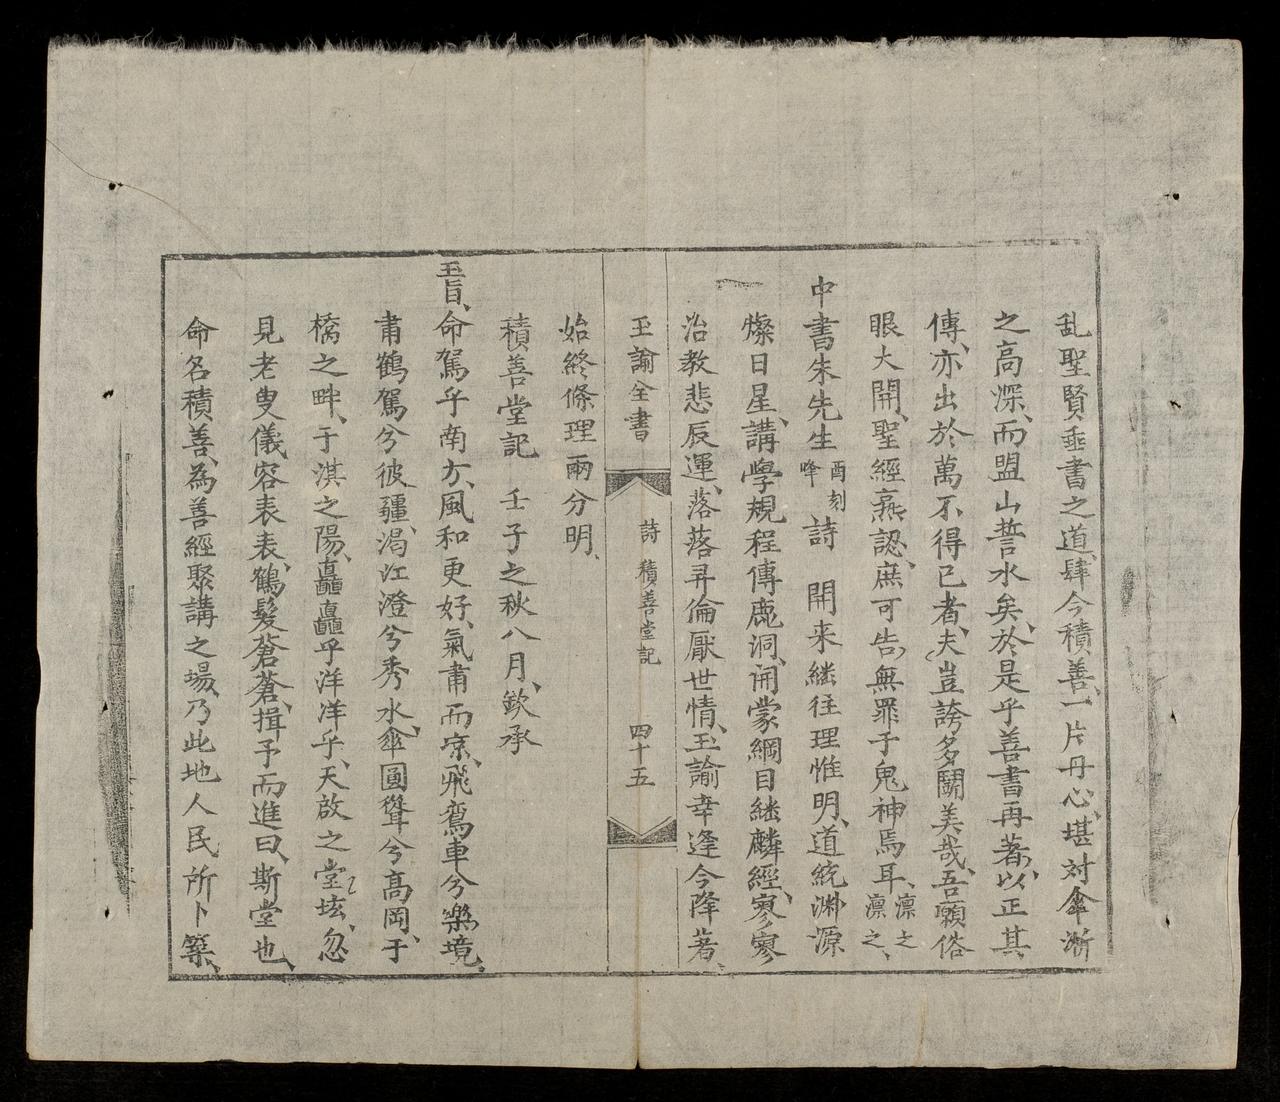 乱聖賢垂書之道、肆今積善、一片丹心、堪対傘浙
之高深、而盟山誓水矣、於是乎善書再著、以正其
傳、亦出於萬不得已者、夫豈誇多鬭美哉、吾願俗
眼大開、聖經燕認、庶可告無罪于鬼神焉耳、凛之凛之、
中書朱先生 酉刻降 詩 開来継往理惟明、道統淵源
燦日星、講學規程傳鹿洞、開蒙綱目継麟經、寥寥
治教悲辰運、落落彛倫厭世情、玉諭幸逢今降著、
玉諭全書 詩 積善堂記 四十五
始終條理兩分明、
積善堂記 壬子之秋八月、欽承
玉旨、命駕乎南方、風和更好、氣肅而凉、飛鸞車兮樂境、
肅鶴駕兮彼疆、渴江澄兮秀水、傘圓聳兮高岡、于
橋之畔、于淇之陽、矗矗乎洋洋乎、天啟之堂玹、忽
見老叟儀容表表、鶴髮蒼蒼、揖予而進曰、斯堂也、
命名積善、為善經聚講之場、乃此地人民所卜築、